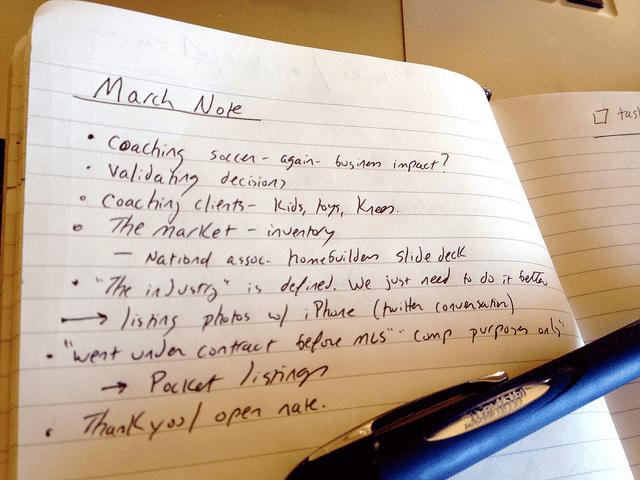 March Note
• Coaching soccer - again - business impact?
• Validating decisions
• Coaching clients - Kids, toys, Knees.
• The market - inventory
— National assoc. homebuilders slide deck
• "The industry" is defined. We just need to do it better
→ listing photos w/ iPhone (twitter conversation)
• "Went under contract before MLS" - "comp purposes only"
→ Pocket listings
• Thank you/ open nate.
task